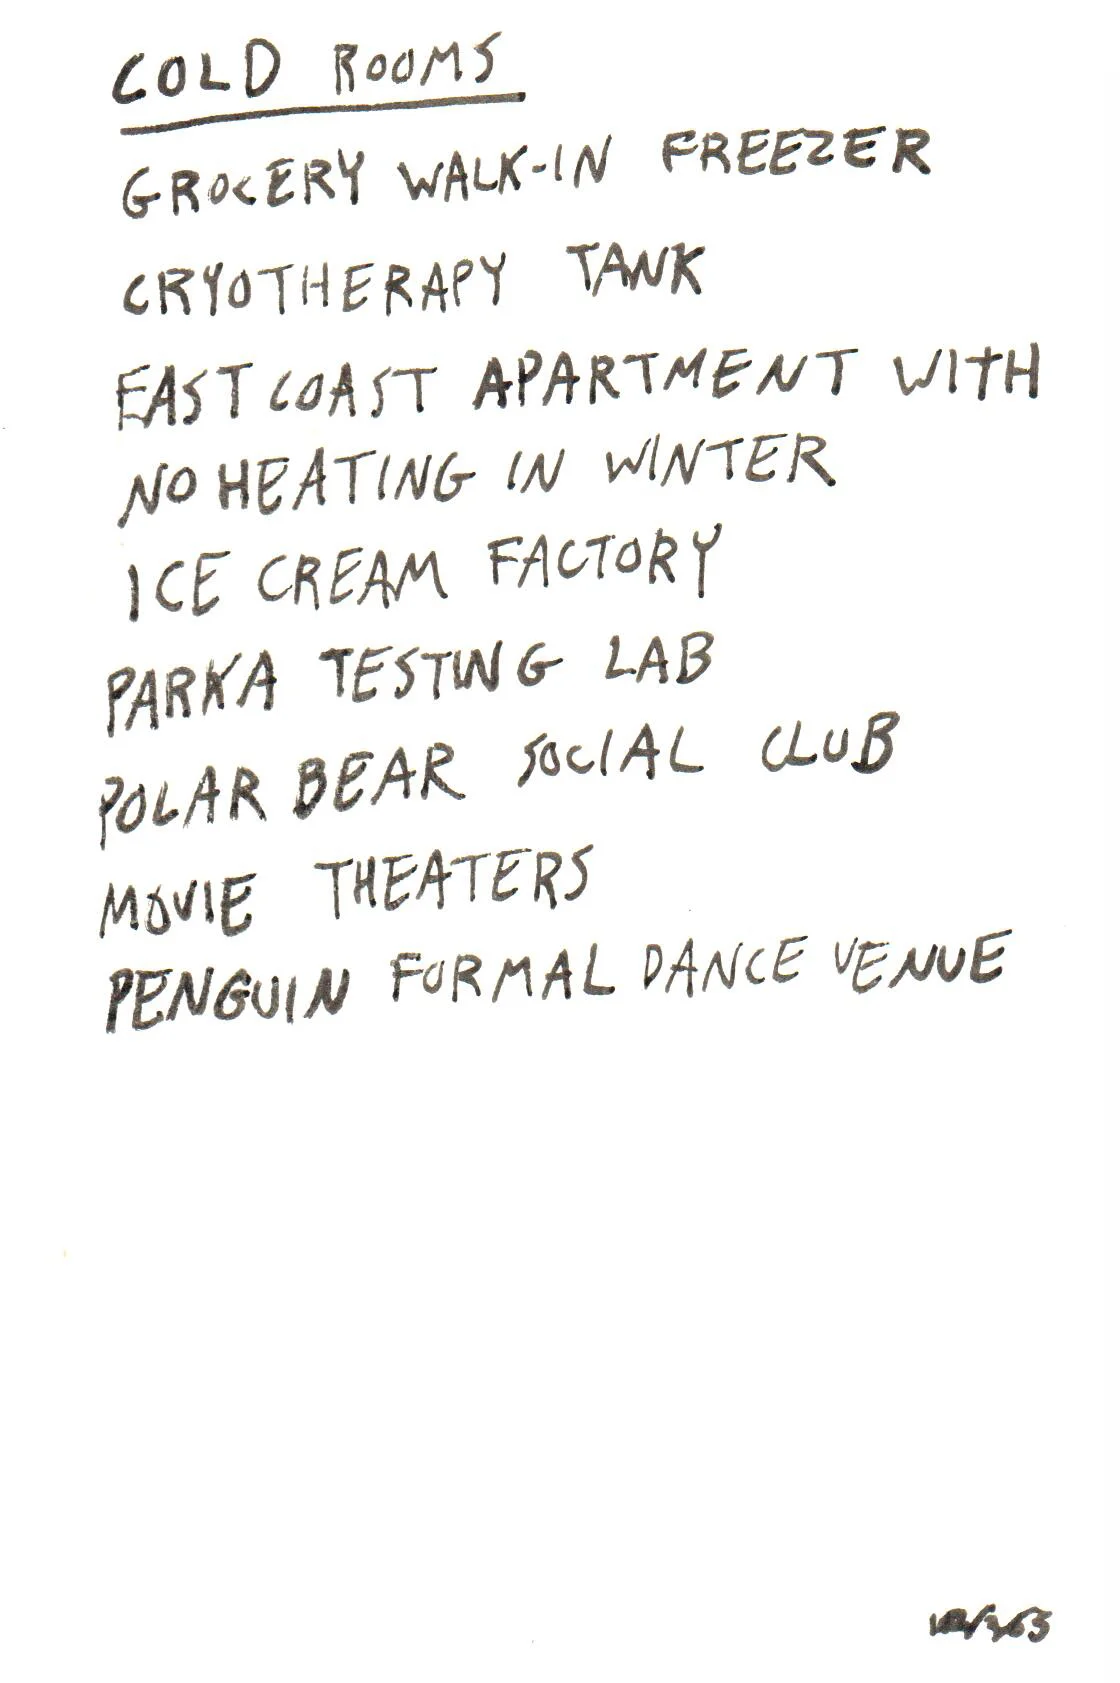 COLD ROOMS
GROCERY WALK-IN FREEZER
CRYOTHERAPY TANK
EAST COAST APARTMENT WITH
NO HEATING IN WINTER
ICE CREAM FACTORY
PARKA TESTING LAB
POLAR BEAR SOCIAL CLUB
MOVIE THEATERS
PENGUIN FORMAL DANCE VENUE